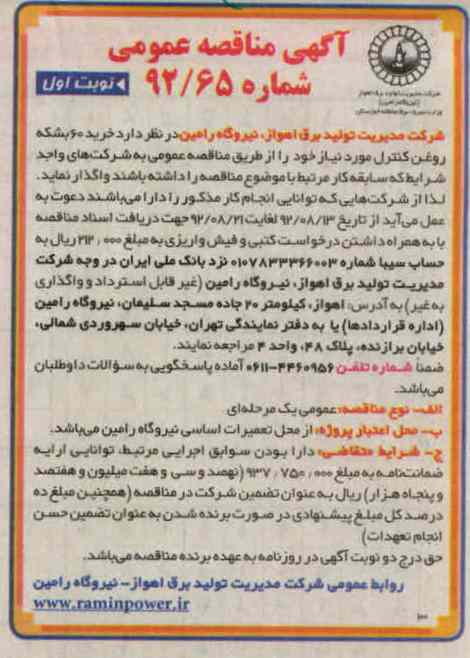 آگهی مناقصه عمومی
شماره ۹۲/۶۵
نوبت اول
شرکت مدیریت تولید برق اهواز
شرکت مدیریت تولید برق اهواز، نیروگاه رامین در نظر دارد خرید ۶۰ بشکه
روغن کنترل مورد نیاز خود را از طریق مناقصه عمومی به شرکت‌های واجد
شرایط که سابقه کار مرتبط با موضوع مناقصه را داشته باشند واگذار نماید.
لذا از شرکت‌هایی که توانایی انجام کار مذکور را دارا می‌باشند دعوت به
عمل می‌آید از تاریخ ۹۲/۰۸/۱۳ لغایت ۹۲/۰۸/۲۱ جهت دریافت اسناد مناقصه
با به همراه داشتن درخواست کتبی و فیش واریزی به مبلغ ۲۱۲٫۰۰۰ ریال به
حساب سیبا شماره ۰۱۰۷۸۳۳۳۶۶۰۰۳ نزد بانک ملی ایران در وجه شرکت
مدیریت تولید برق اهواز، نیروگاه رامین (غیر قابل استرداد و واگذاری
به غیر) به آدرس: اهواز، کیلومتر ۲۰ جاده مسجد سلیمان، نیروگاه رامین
(اداره قراردادها) یا به دفتر نمایندگی تهران، خیابان سهروردی شمالی،
خیابان برازنده، پلاک ۴۸، واحد ۴ مراجعه نمایند.
ضمنا شماره تلفن ۴۴۶۰۹۵۶-۰۶۱۱ آماده پاسخگویی به سوالات داوطلبان
می‌باشد.
الف- نوع مناقصه: عمومی یک مرحله‌ای
ب- محل اعتبار پروژه: از محل تعمیرات اساسی نیروگاه رامین می‌باشد.
ج- شرایط متقاضی: دارا بودن سوابق اجرایی مرتبط، توانایی ارایه
ضمانتنامه به مبلغ ۹۳۷٫۷۵۰٫۰۰۰ (نهصد و سی و هفت میلیون و هفتصد
و پنجاه هزار) ریال به عنوان تضمین شرکت در مناقصه (همچنین مبلغ ده
درصد کل مبلغ پیشنهادی در صورت برنده شدن به عنوان تضمین حسن
انجام تعهدات)
حق درج دو نوبت آگهی در روزنامه به عهده برنده مناقصه می‌باشد.
روابط عمومی شرکت مدیریت تولید برق اهواز- نیروگاه رامین
www.raminpower.ir